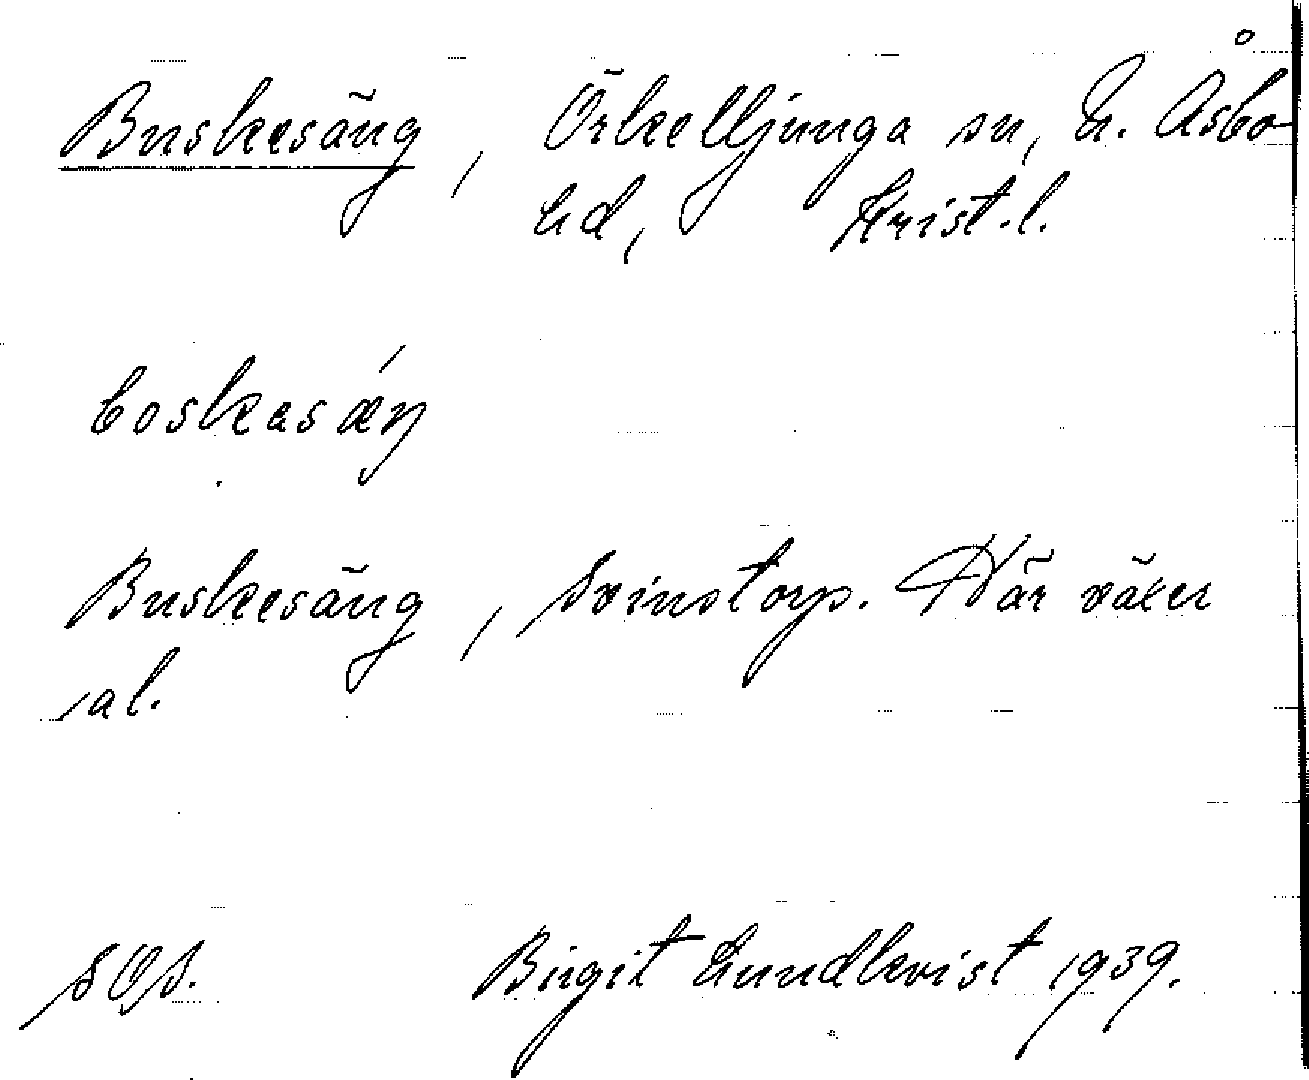 Buskesäng, Örkelljunga sn, N. Åsbo
hd, Krist. l.
boskasǽŋ
Buskesäng, Svinstorp. Här växer
al.
SOS. Birgit Lundkvist 1939.